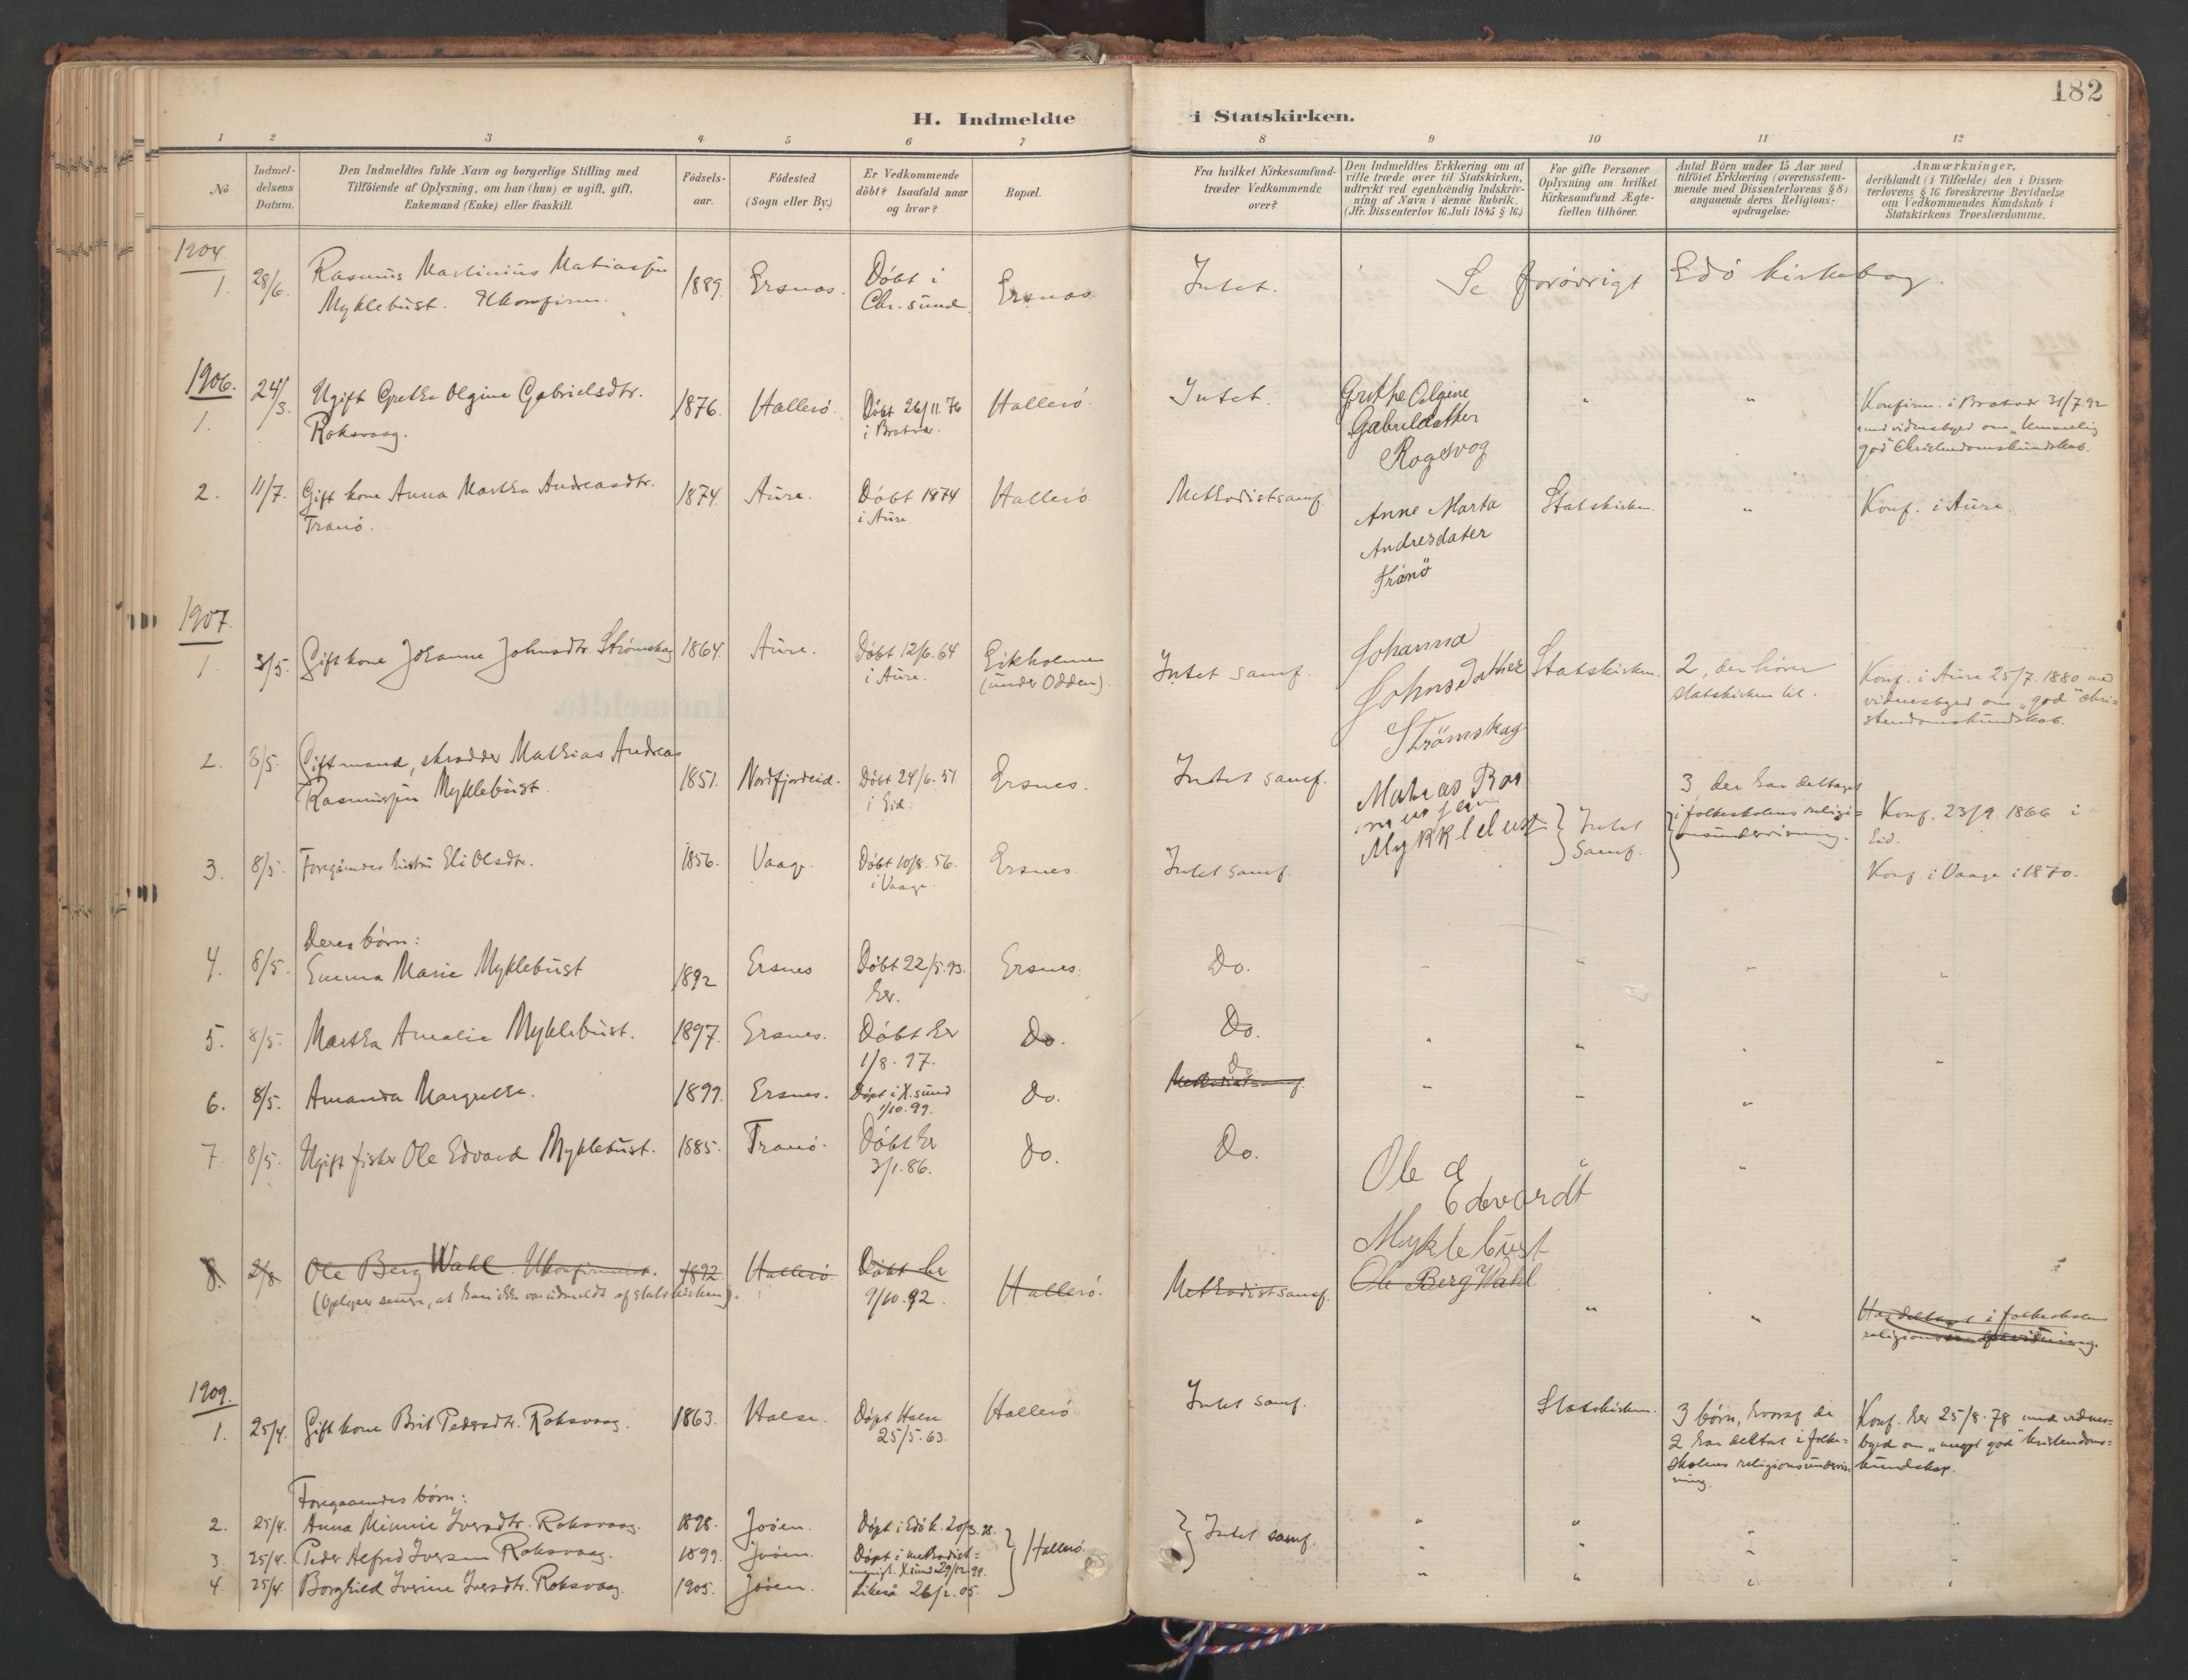 182
H. Indmeldte i Statskirken.
1 2 3 4 5 6 7 8 9 10 11 12
No
Indmel-
delsens
Datum.
Den Indmeldtes fulde Navn og borgerlige Stilling med
Tilföiende af Oplysning, om han (hun) er ugift, gift,
Enkemand (Enke) eller fraskilt.
Födsels-
aar.
Födested
(Sogn eller By.)
Er Vedkommende
döbt? Isaafald naar
og hvor?
Bopæl.
Fra hvilket Kirkesamfund
træder Vedkommende
over?
Den Indmeldtes Erklæring om at
ville træde over til Statskirken,
udtrykt ved egenhændig Indskriv-
ning af Navn i denne Rubrik.
(Jfr. Dissenterlov 16 Juli 1845 § 16.)
For gifte Personer
Oplysning om hvilket
Kirkesamfund Ægte-
fællen tilhörer.
Antal Börn under 15 Aar med
tilföiet Erklæring (overensstem-
mende med Dissenterlovens § 8)
angaaende deres Religions-
opdragelse:
Anmærkninger,
deriblandt (i Tilfælde) den i Dissen-
terlovens § 16 foreskrevne Bevidnelse
om Vedkommendes Kundskab i
Statskirkens Troeslærdomme.
1904.
1. 28/6. Rasmus Martinius Matiassen 1889. Ersnes. Döbt i Ersnes. Intet. Se forövrigt Edö kirkebog.
Myklebust. Ukonfirm. Chr.sund.
1906.
1. 24/3. Ugift Grethe Olgine Gabrielsdtr. 1876. Hallerö. Döbt 26/11.76 Hallerö. Intet. Grethe Olgine " " Konfirm. i Bratvær 31/7.92
Roksvaag. i Bratvær. Gabrielsdtter med vidnesbyrd om "temmelig
Rogsvog god" Christendomskundskab.
2. 11/7. Gift kone Anna Martha Andreasdtr. 1874. Aure. Döbt 1874 Hallerö Methodistsamf. Anne Marta Statskirken. " Konf. i Aure.
Tranö. i Aure Andresdater
Tranö
1907.
1 3/5. Gift kone Johanne Johnsdtr. Strömskag 1864. Aure. Döbt 12/6.64 Eikholmen Intet samf. Johanna Statskirken. 2, der hörer Konf. i Aure 25/7.1880 med
i Aure. (under Odden). Johnsdatter statskirken til. vidnesbyrd om "god" chri-
Strömskag stendomskundskab.
2. 8/5. Gift mand, skrædder Mathias Andreas 1851. Nordfjordeid. Döbt 24/6.51 Ersnes. Intet samf. Matias Ras 3, der har deltaget Konf. 23/9 1866 i
Rasmussen Myklebust. i Eid. mussen } Intet i folkeskolens religi- Eid.
Mykklebust samf. onsundervisning.
3. 8/5. Foregåendes hustru Eli Olsdtr. 1856. Vaagö. Döbt 10/8.56. Ersnes. Intet samf. Konf. i Vaagö i 1870.
i Vaagö.
Deres börn:
4. 8/5. Emma Marie Myklebust 1892 Ersnes Döbt 22/5.93. Ersnes. Do. " " " "
her.
5. 8/5. Martha Amalie Myklebust. 1897. Ersnes. Döbt her Do. Do. " " " "
1/8.97.
6. 8/5. Amanda Margrethe. 1899. Ersnes. Döpt i X.sund Do. Methodistsamf. Do " " "
1/10.99.
7 8/5. Ugift fisker Ole Edvard Myklebust. 1885. Tranö. Döbt her Do. Do. Ole " "
3/1.86. Edevardt
Myklebust
8. 2/8 Ole Berg Wahl. Ukonfirmert. 1892 Hallerö Döbt her Hallerö. Methodistsamf. Ole Berg Wahl " " Har deltaget i folkeskolens
(Oplyser senere, at han ikke var udmeldt af statskirken). 9/10.92. religionsundervisning.
1909.
1. 25/4. Gift kone Brit Pedersdtr. Roksvaag. 1863. Halse. Döpt Halse Hallerö Intet samf. Statskirken. 3 börn, hvoraf de Konf. her 25/8.78 med vidnes-
25/5.63. 2 har deltat i folke- byrd om "meget god" kristendoms-
skolens religionsundervis- kundskap.
ning.
Foregaaendes börn:
2. 25/4. Anna Minnie Iversdtr. Roksvaag. 1898. Joöen. Döpt i Edö k. 20/3.98. } Hallerö } Intet samf. " " " "
3. 25/4. Peder Alfred Iversen Roksvaag. 1899. Joöen. Döpt i methodist- " " " "
menigh. X.sund 29/12.99.
4. 25/4. Borghild Iverine Iversdtr. Roksvaag. 1905. Joöen. Likeså 26/2.05. " " " "